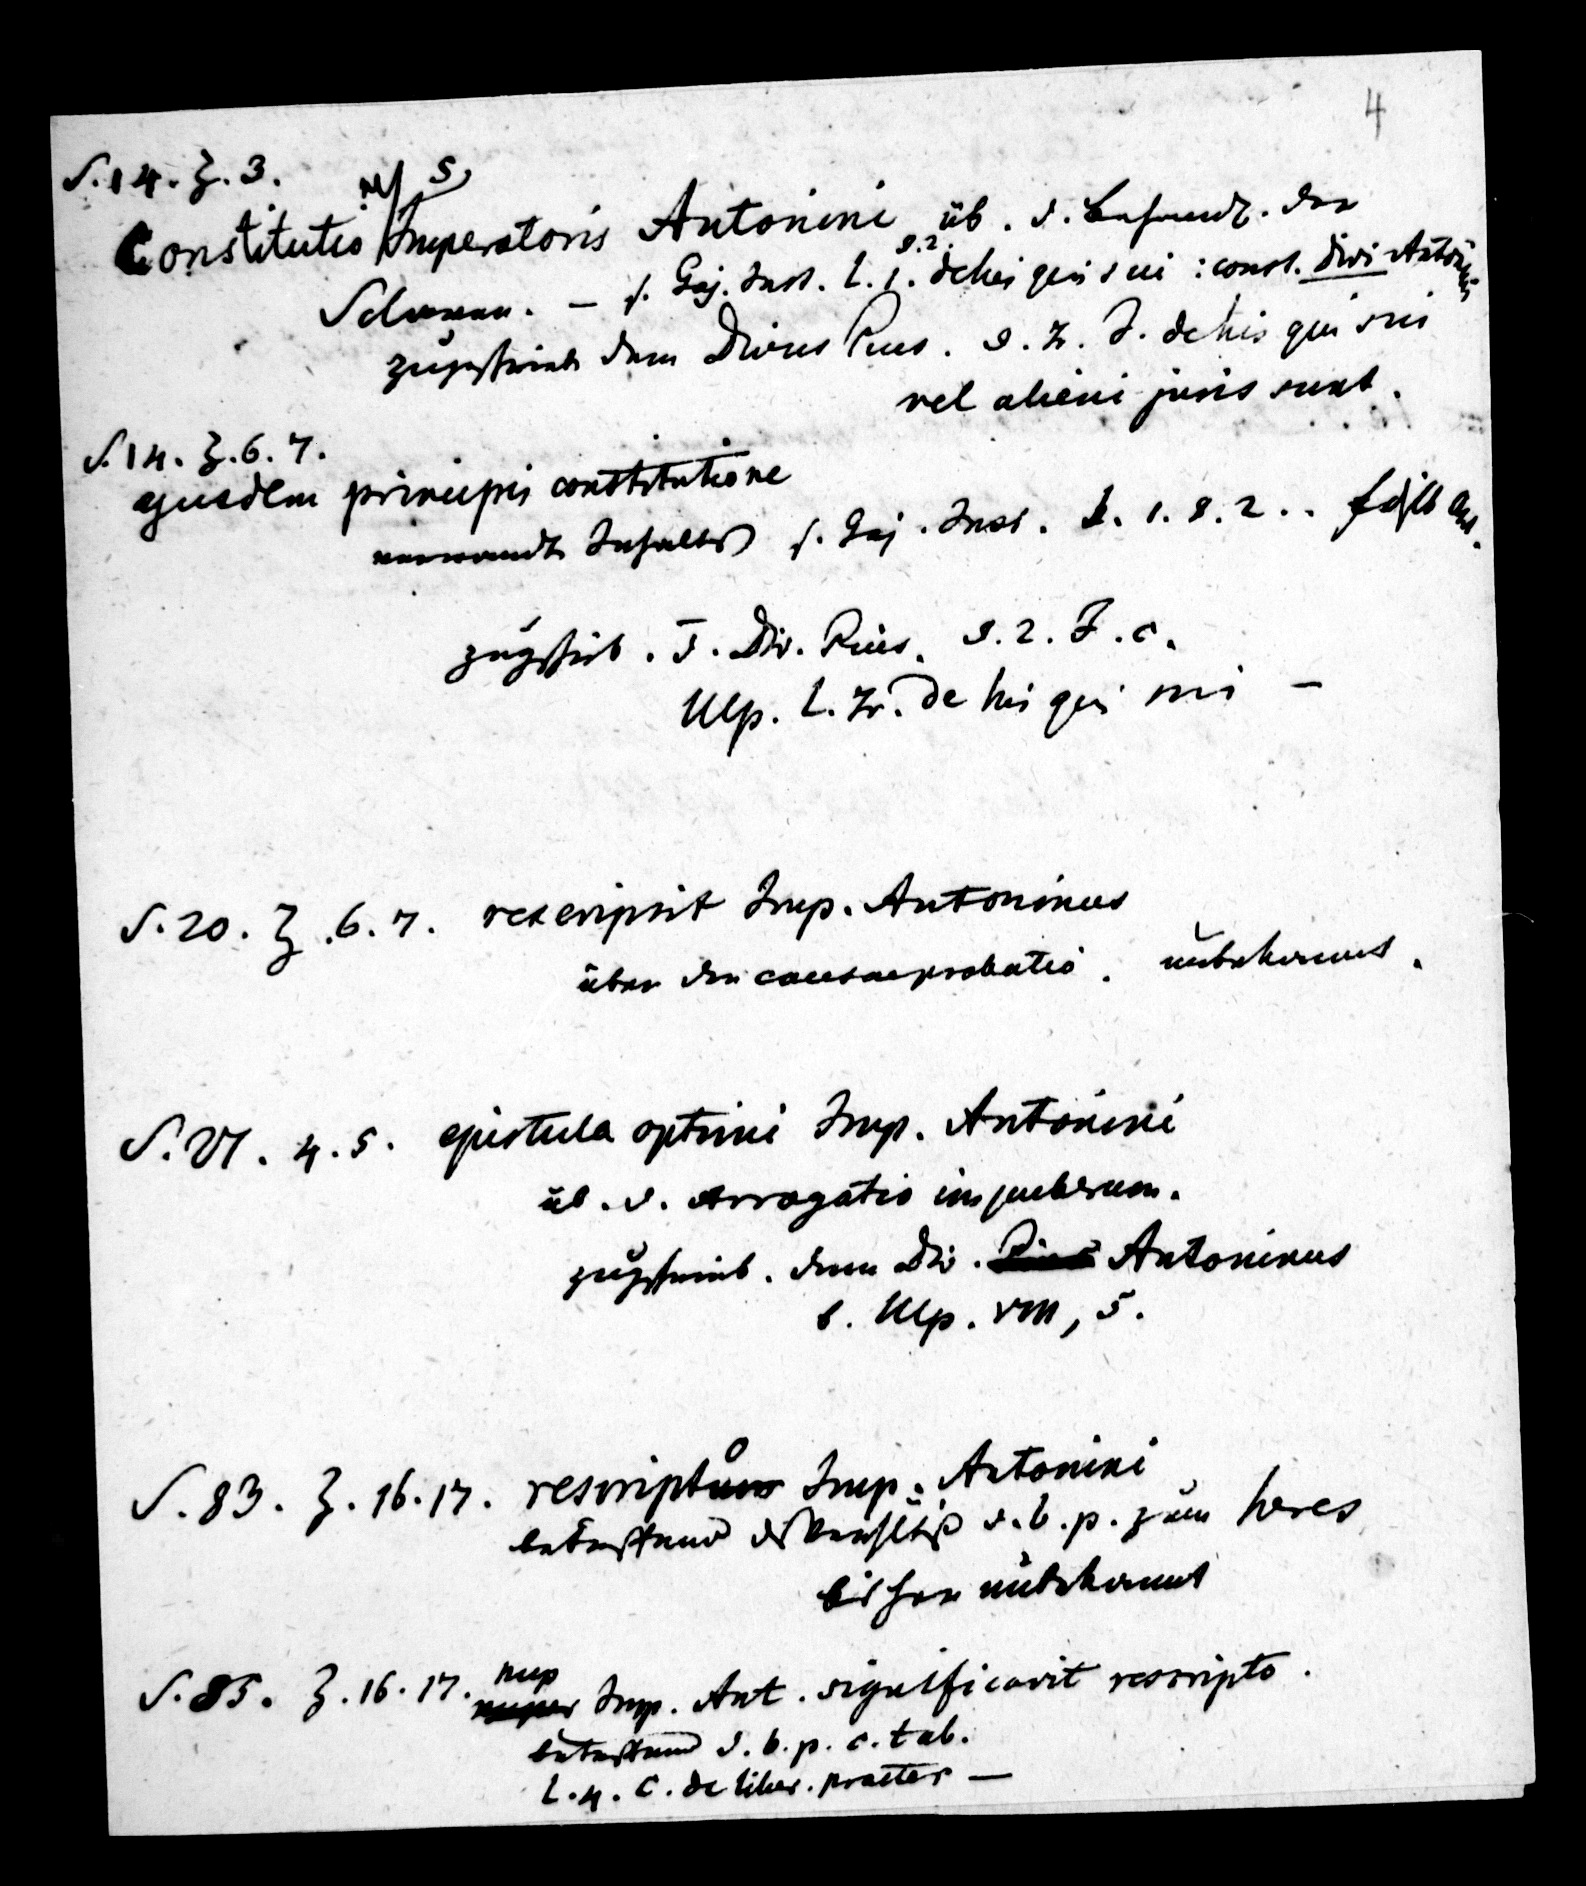 4
S. 14. Z. 3.
Constitutio Imperatoris Antonini üb. d. Behandl. der
Sclaven. – s. Gaj. Inst. L. 1. §. 2. de his qui sui : const. divi Antonini
zugeschrieb dem Divus Pius. §. 2. J. de his qui sui
vel alieni juris sunt.
S. 14. Z. 6. 7.
ejusdem principis constitutione
verwandt Inhalts s. Gaj. Inst. L. 1. §. 2..
zugschrieb. d. Div. Pius. §. 2. J. c.
Ulp. L. 2. de his qui sui –
S. 20. Z. 6. 7. rescripsit Imp. Antoninus
über den causae probatio. unbekannt.
S. 21. 4. 5. epistula optimi Imp. Antonini
üb. d. Arrogatio impuberum.
zugeschrieb. dem Div. Pius Antoninus
b. Ulp. VIII, 5.
S. 83. Z. 16. 17. rescripto Imp. Antonini
betreffend d Verhltß d. b. p. zum heres
bisher unbekannt
S. 85. Z. 16. 17. nup
nuper Imp. Ant. significavit rescripto.
betreffend d. b. p. c. tab.
L. 4. C. de liber. praeter –